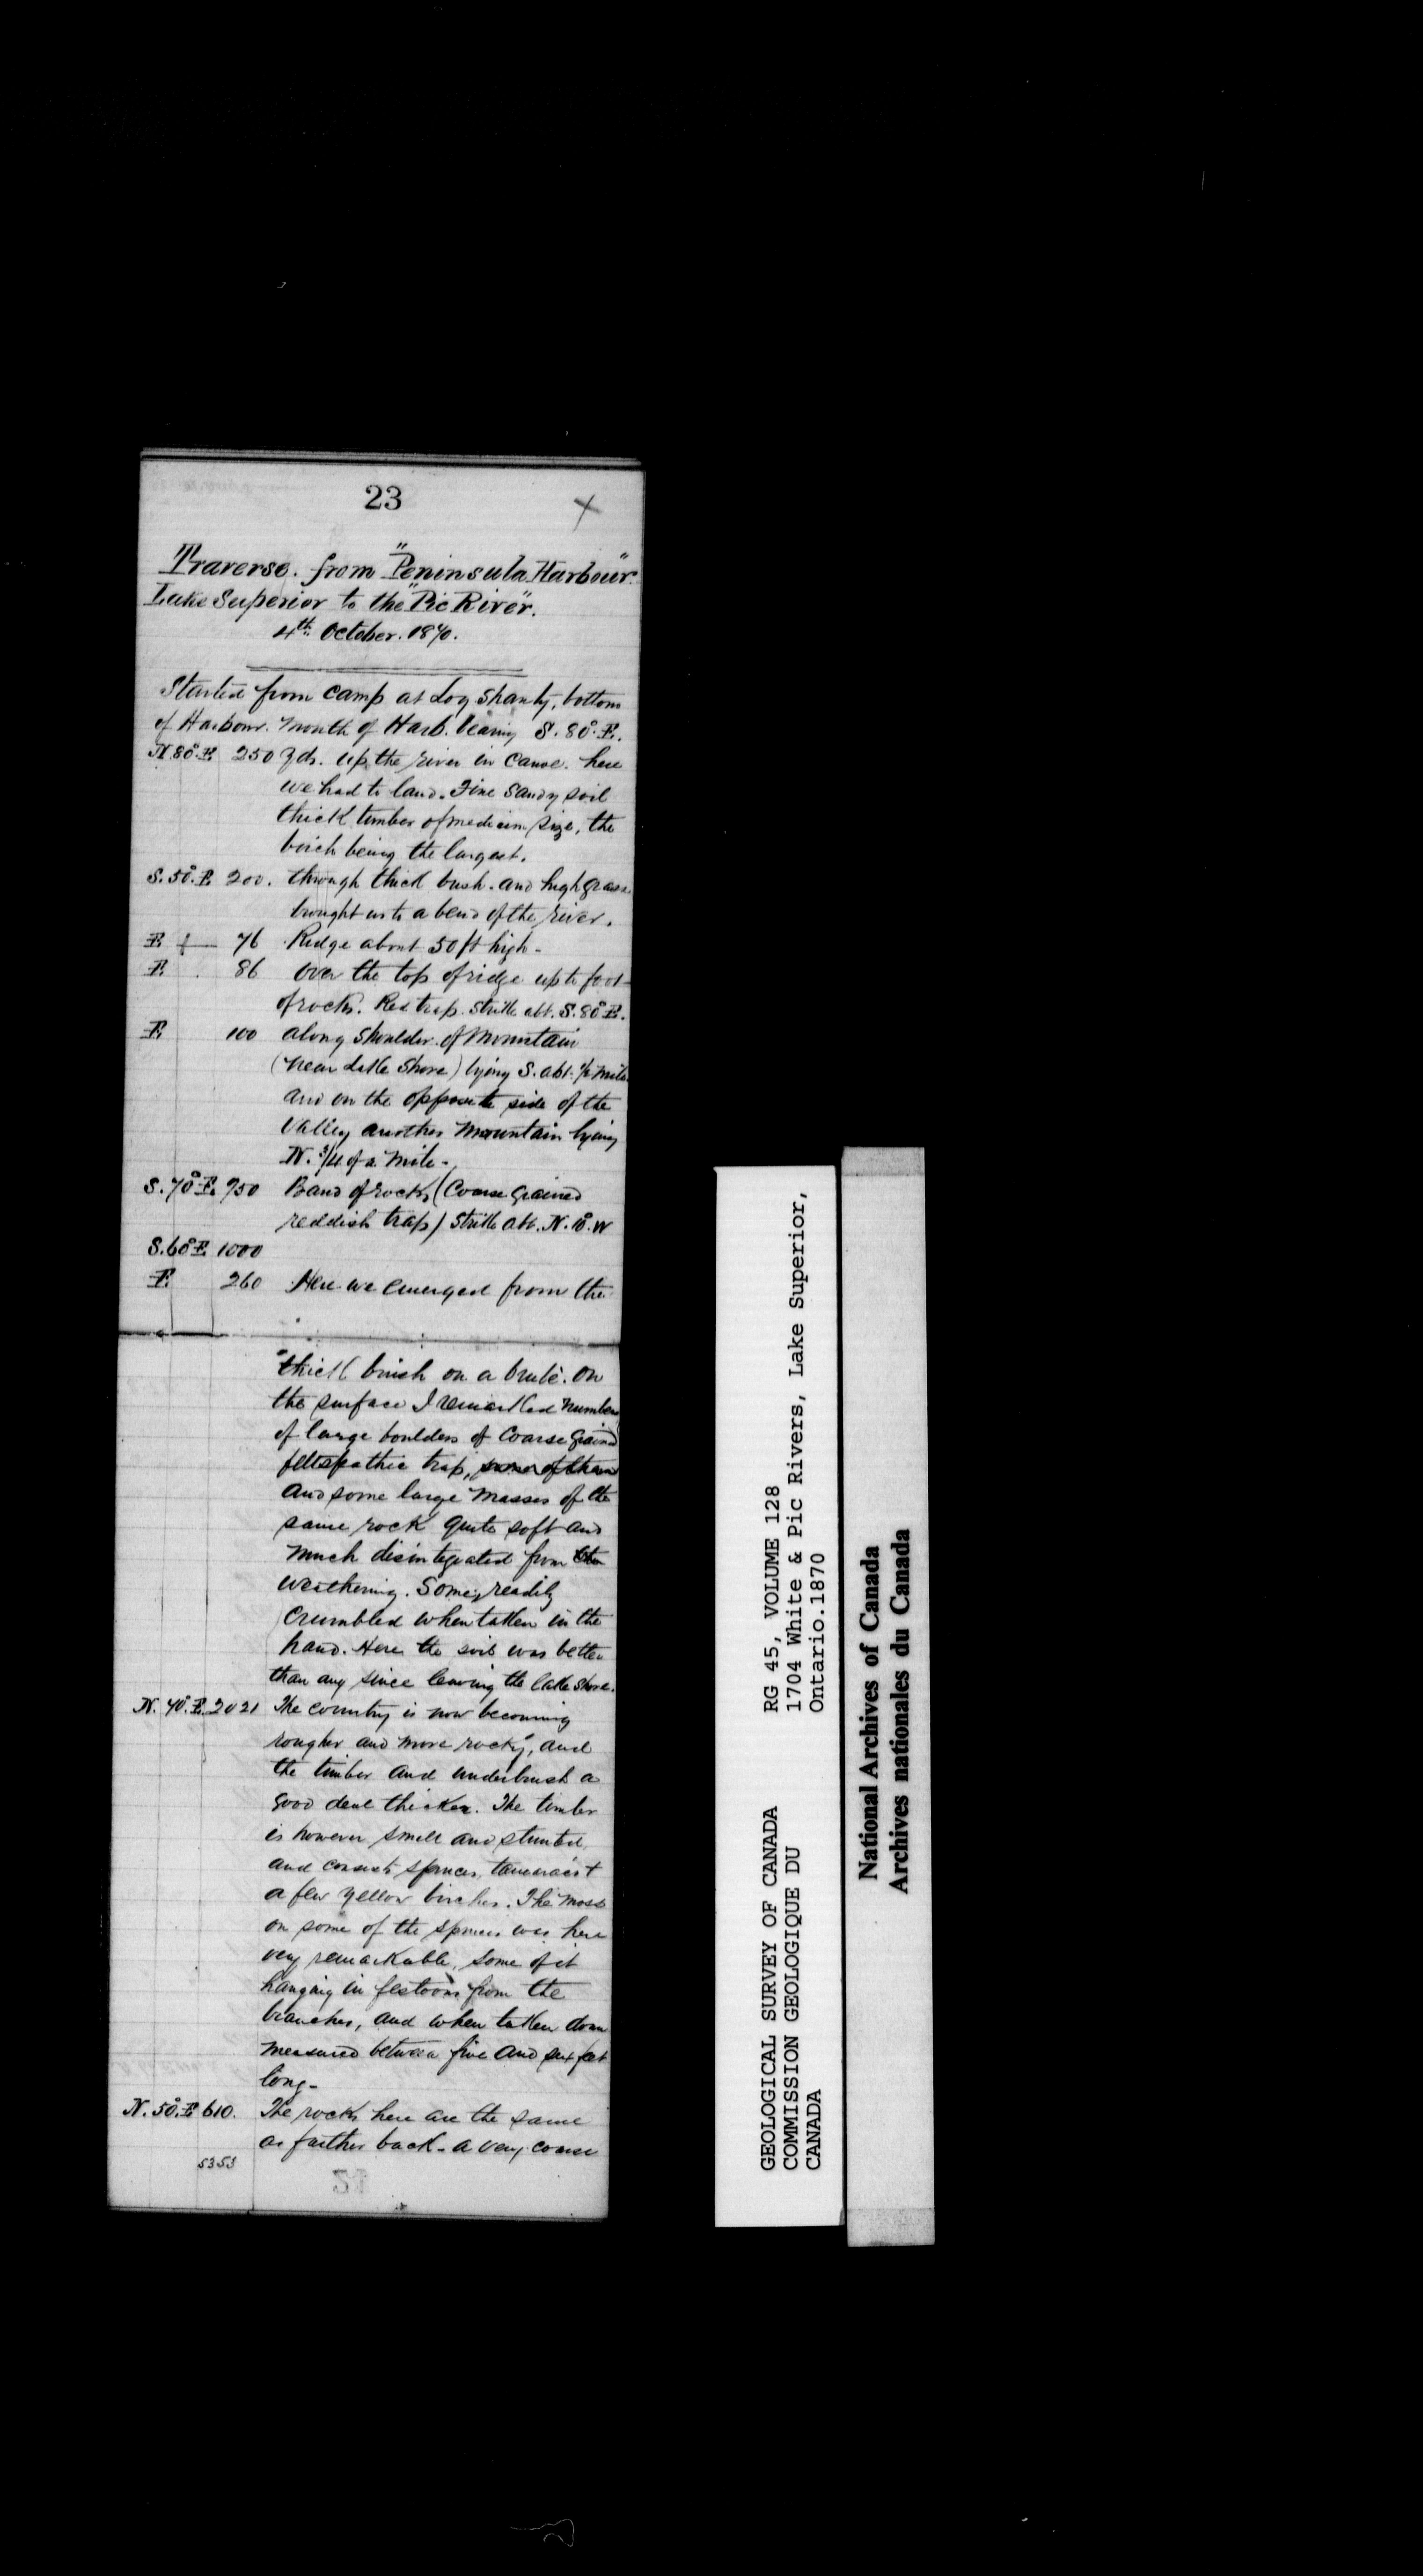 23
Traverse. from "Peninsula Harbour".
Lake Superior to the "Pic River".
4th October. 1870.
Started from camp at Log Shanty, bottom
of Harbour. Mouth of Harb. bearing S. 80° E.
N. 80° E. 250 Yds. up the river in canoe. here
we had to land. Fine sandy soil
thick timber of medium size, the
birch being the largest.
S. 50° E. 200. through thick bush. and high grass
brought us to a bend of the river.
E 76 Ridge about 50 ft high -
E. 86 Over the top of ridge up to foot
of rocks. Red trap. Strike abt. S. 80° E.
E. 100 along shoulder of Mountain
(near Lake Shore) lying S. abt. 1/2 mile
and on the opposite side of the
valley another mountain lying
N. 3/4 of a mile -
S. 70° E. 750 Band of rocks (Coarse grained
reddish trap) Strike abt. N. 10° W
S. 60° E 1000
E. 260 Here we emerged from the
thick brush on a brulé. On
the surface I remarked numbers
of large boulders of coarse grained
feltspathic trap, some of them
and some large masses of the
same rock quite soft and
much disintegrated from the
weathering. Some, readily
crumbled when taken in the
hand. Here the soil was better
than any since leaving the lake shore.
N. 40° E. 2021 The country is now becoming
rougher and more rocky, and
the timber and underbrush a
good deal thicker. The timber
is however small and stunted,
and consists spruces, tamarács +
a few yellow birches. The moss
on some of the spruces was here
very remarkable, some of it
hanging in festoons from the
branches, and when taken down
measured between five and six feet
long -
N. 50° E 610. The rocks here are the same
as farther back - a very coarse
5353
GEOLOGICAL SURVEY OF CANADA
COMMISSION GEOLOGIQUE DU
CANADA
RG 45, VOLUME 128
1704 White & Pic Rivers, Lake Superior,
Ontario.1870
National Archives of Canada
Archives nationales du Canada